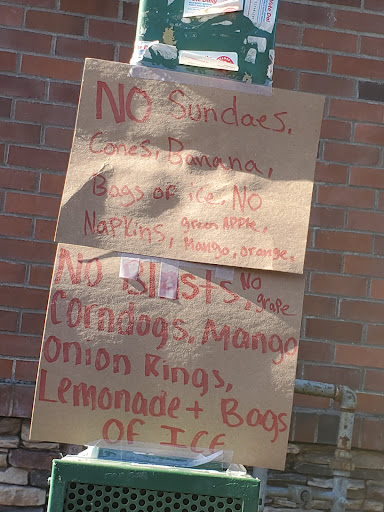 NO Sundaes,
Cones, Banana,
Bags of ice, NO
Napkins, green Apple,
Mango, orange,
NO Blasts, NO
grape
Corndogs, Mango
Onion Rings,
Lemonade + Bags
OF ICE